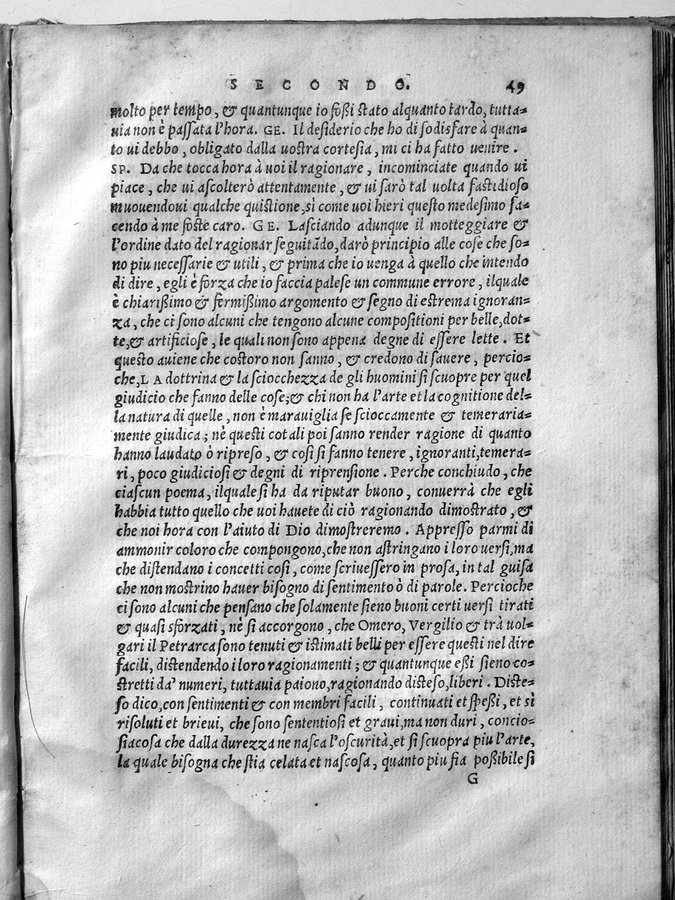 SECONDO. 49
molto per tempo, & quantunque io foßi stato alquanto tardo, tutta=
uia non è paſſata l'hora. GE. Il deſiderio che ho di ſodisfare à quan=
to ui debbo, obligato dalla uostra corteſia, mi ci ha fatto uenire.
SP. Da che tocca hora à uoi il ragionare, incominciate quando ui
piace, che ui aſcolterò attentamente, & ui ſarò tal uolta fastidioſo
muouendoui qualche quistione, ſi come uoi hieri questo medeſimo fa=
cendo à me foste caro. GE. Laſciando adunque il motteggiare &
l'ordine dato del ragionar ſeguitãdo, darò principio alle coſe che ſo=
no piu neceſſarie & utili, & prima che io uenga à quello che intendo
di dire, egli è forza che io faccia paleſe un commune errore, ilquale
è chiarißimo & fermißimo argomento & ſegno di estrema ignoran=
za, che ci ſono alcuni che tengono alcune compoſitioni per belle, dot=
te, & artificioſe, le quali non ſono appena degne di eſſere lette. Et
questo auiene che costoro non ſanno, & credono di ſauere, percio=
che, LA dottrina & la ſciocchezza de gli huomini ſi ſcuopre per quel
giudicio che fanno delle coſe; & chi non ha l'arte et la cognitione del=
la natura di quelle, non è marauiglia ſe ſcioccamente & temeraria=
mente giudica; nè questi cotali poi ſanno render ragione di quanto
hanno laudato ò ripreſo, & coſi ſi fanno tenere, ignoranti, temera=
ri, poco giudicioſi & degni di riprenſione. Perche conchiudo, che
ciaſcun poema, ilquale ſi ha da riputar buono, conuerrà che egli
habbia tutto quello che uoi hauete di ciò ragionando dimostrato, &
che noi hora con l'aiuto di Dio dimostreremo. Appreſſo parmi di
ammonir coloro che compongono, che non astringano i loro uerſi, ma
che distendano i concetti coſi, come ſcriueſſero in proſa, in tal guiſa
che non mostrino hauer biſogno di ſentimento ò di parole. Percioche
ci ſono alcuni che penſano che ſolamente ſieno buoni certi uerſi tirati
& quaſi sforzati, nè ſi accorgono, che Omero, Vergilio & trà uol=
gari il Petrarca ſono tenuti & istimati belli per eſſere questi nel dire
facili, distendendo i loro ragionamenti; & quantunque eßi ſieno co=
stretti da' numeri, tuttauia paiono, ragionando disteſo, liberi. Diste=
ſo dico, con ſentimenti & con membri facili, continuati et ſpeßi, et ſi
riſoluti et brieui, che ſono ſententioſi et graui, ma non duri, concio=
ſiacoſa che dalla durezza ne naſca l'oſcurità, et ſi ſcuopra piu l'arte,
la quale biſogna che stia celata et naſcoſa, quanto piu ſia poßibile ſi
G